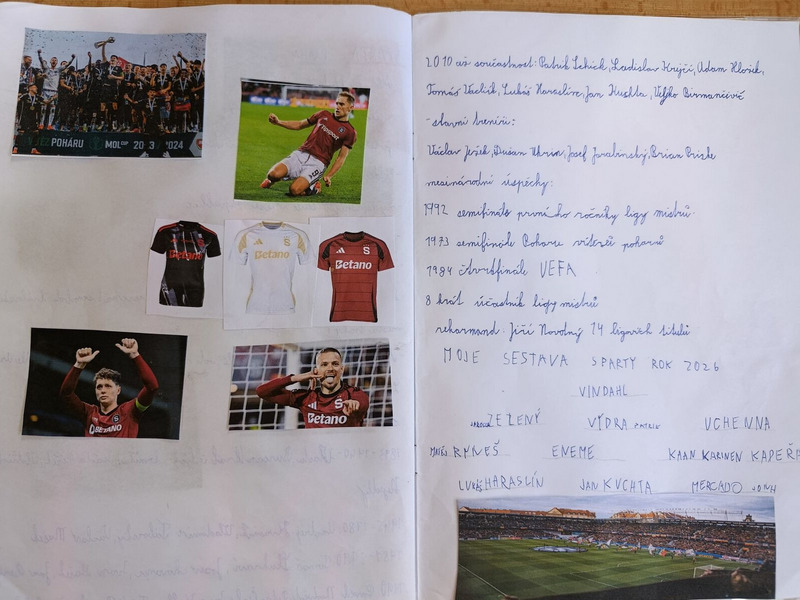 POHÁRU MOL CUP 2023 2024
Betano
Betano
Betano
BETANO
Betano
2010 až současnost: Patrik Schick, Ladislav Krejčí, Adam Hložek,
Tomáš Vaclík, Lukáš Haraslín, Jan Kuchta, Veljko Birmančević
- slavní trenéři:
Václav Ježek, Dušan Uhrin, Josef Jarabinský, Brian Priske
mezinárodní úspěchy:
1992 semifinále prvního ročníky ligy mistrů
1973 semifinále Poháru vítězů pohárů
1984 čtvrtfinále UEFA
8 krát účastník ligy mistrů
rekormand: Jiří Novotný 14 ligových titulů
MOJE SESTAVA SPARTY ROK 2026
VINDAHL
ZELENÝ VÝDRA PATRIK UCHENNA
MATĚJ RYNEŠ ENEME KAAN KAIRINEN KAPEŘA
LUKÁŠ HARASLÍN JAN KUCHTA MERCADO JOHN